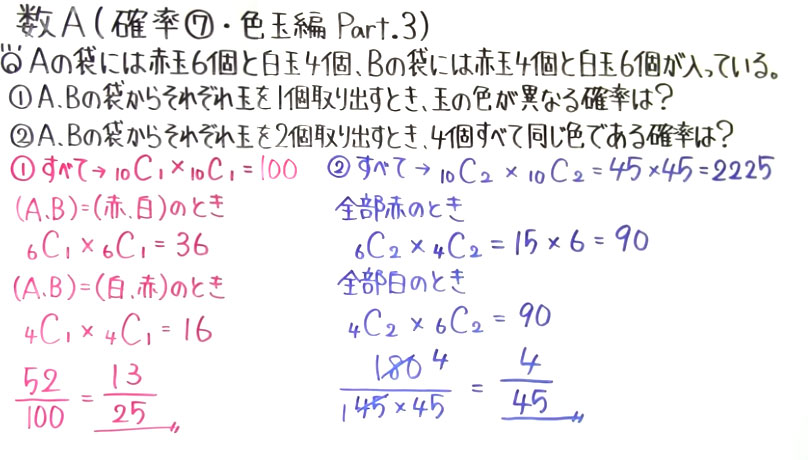 数A(確率⑦・色玉編 Part.3)
◎ Aの袋には赤玉6個と白玉4個、Bの袋には赤玉4個と白玉6個が入っている。
① A、Bの袋からそれぞれ玉を1個取り出すとき、玉の色が異なる確率は?
② A、Bの袋からそれぞれ玉を2個取り出すとき、4個すべて同じ色である確率は?
① すべて→ ₁₀C₁×₁₀C₁=100
(A、B)=(赤、白)のとき
₆C₁×₆C₁=36
(A、B)=(白、赤)のとき
₄C₁×₄C₁=16
52/100=13/25
② すべて→ ₁₀C₂×₁₀C₂=45×45=2225
全部赤のとき
₆C₂×₄C₂=15×6=90
全部白のとき
₄C₂×₆C₂=90
180 4/1 45×45=4/45